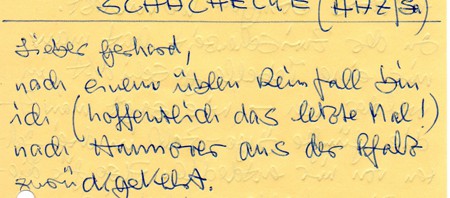 SCHACHECKE (HAZ/Sa)
Lieber Gerhard,
nach einem üblen Reinfall bin
ich (hoffentlich das letzte Mal!)
nach Hannover aus der Pfalz
zurückgekehrt.